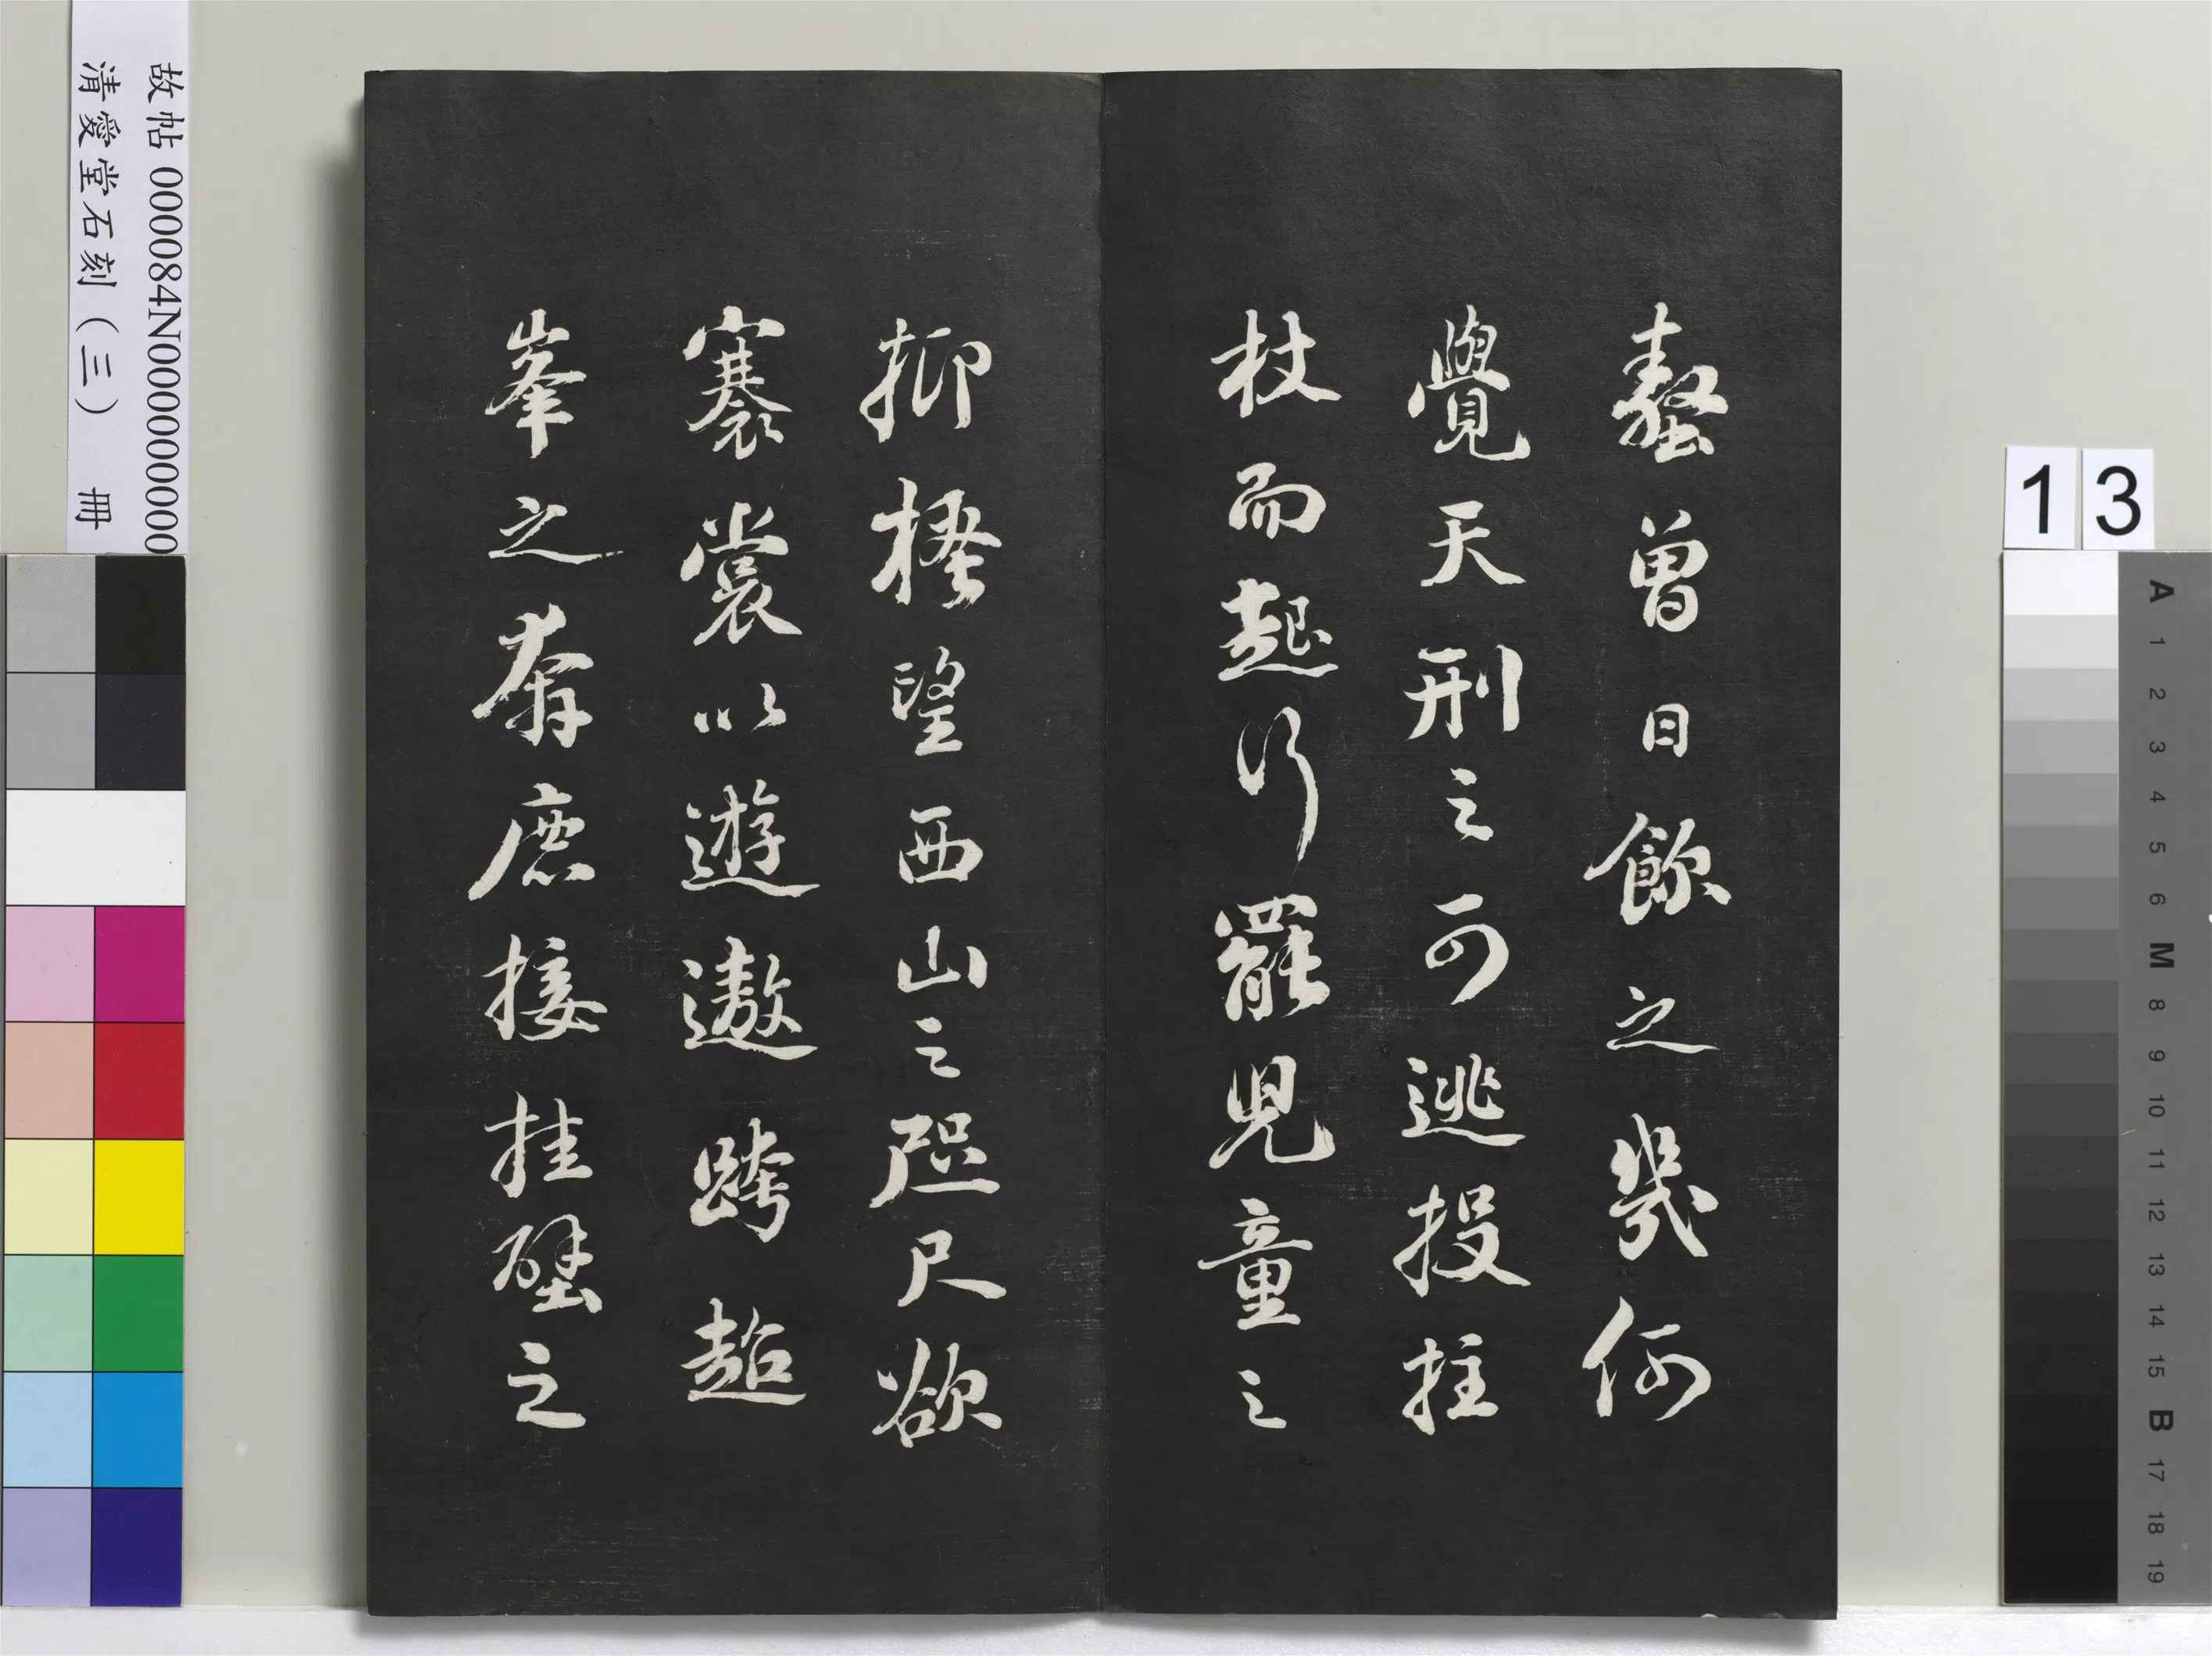 螯曾日飲之幾何
覺天刑之可逃投拄
杖而起行罷兒童之
抑搔望西山之咫尺欲
褰裳以遊遨跨超
峯之奔鹿接挂壁之
故帖 000084N000000000
清愛堂石刻（三） 冊
13
A 1 2 3 4 5 6 M 8 9 10 11 12 13 14 15 B 17 18 19